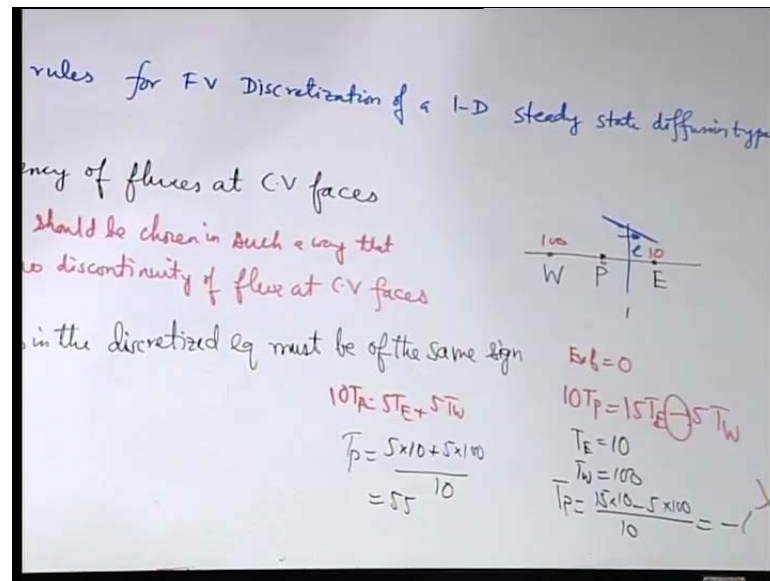 rules for FV Discretization of a 1-D steady state diffusion type
ency of fluxes at C.V faces
should be chosen in such a way that
no discontinuity of flux at C.V faces
in the discretized eq must be of the same sign
100
e 10
W P E
1
Ex b=0
10TP=5TE+5TW
TP=5x10+5x100
10
=55
10TP=15TE-5TW
TE=10
TW=100
TP=15x10-5x100
10
=-